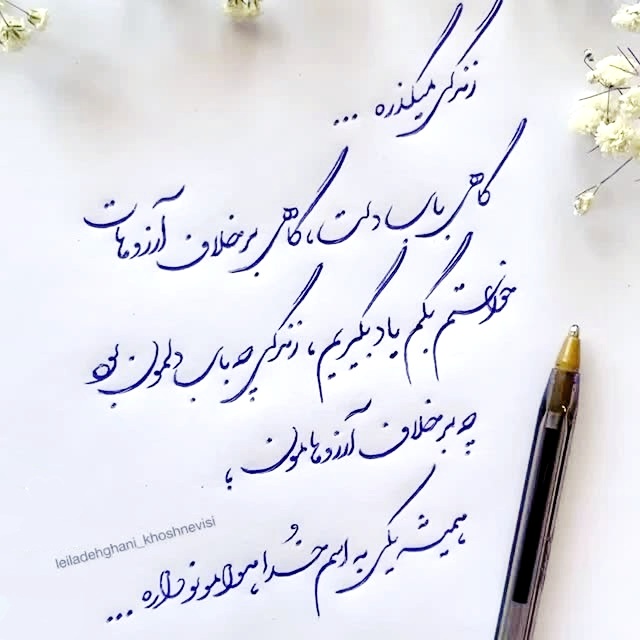 زندگی میگذره ...
گاهی باب دلت، گاهی بر خلاف آرزوهات
خواستم بگم یاد بگیریم، زندگی چه باب دلمون بود
چه بر خلاف آرزوهامون ؛
همیشه یکی به اسم خُدا هوامونو داره ...
leiladehghani_khoshnevisi